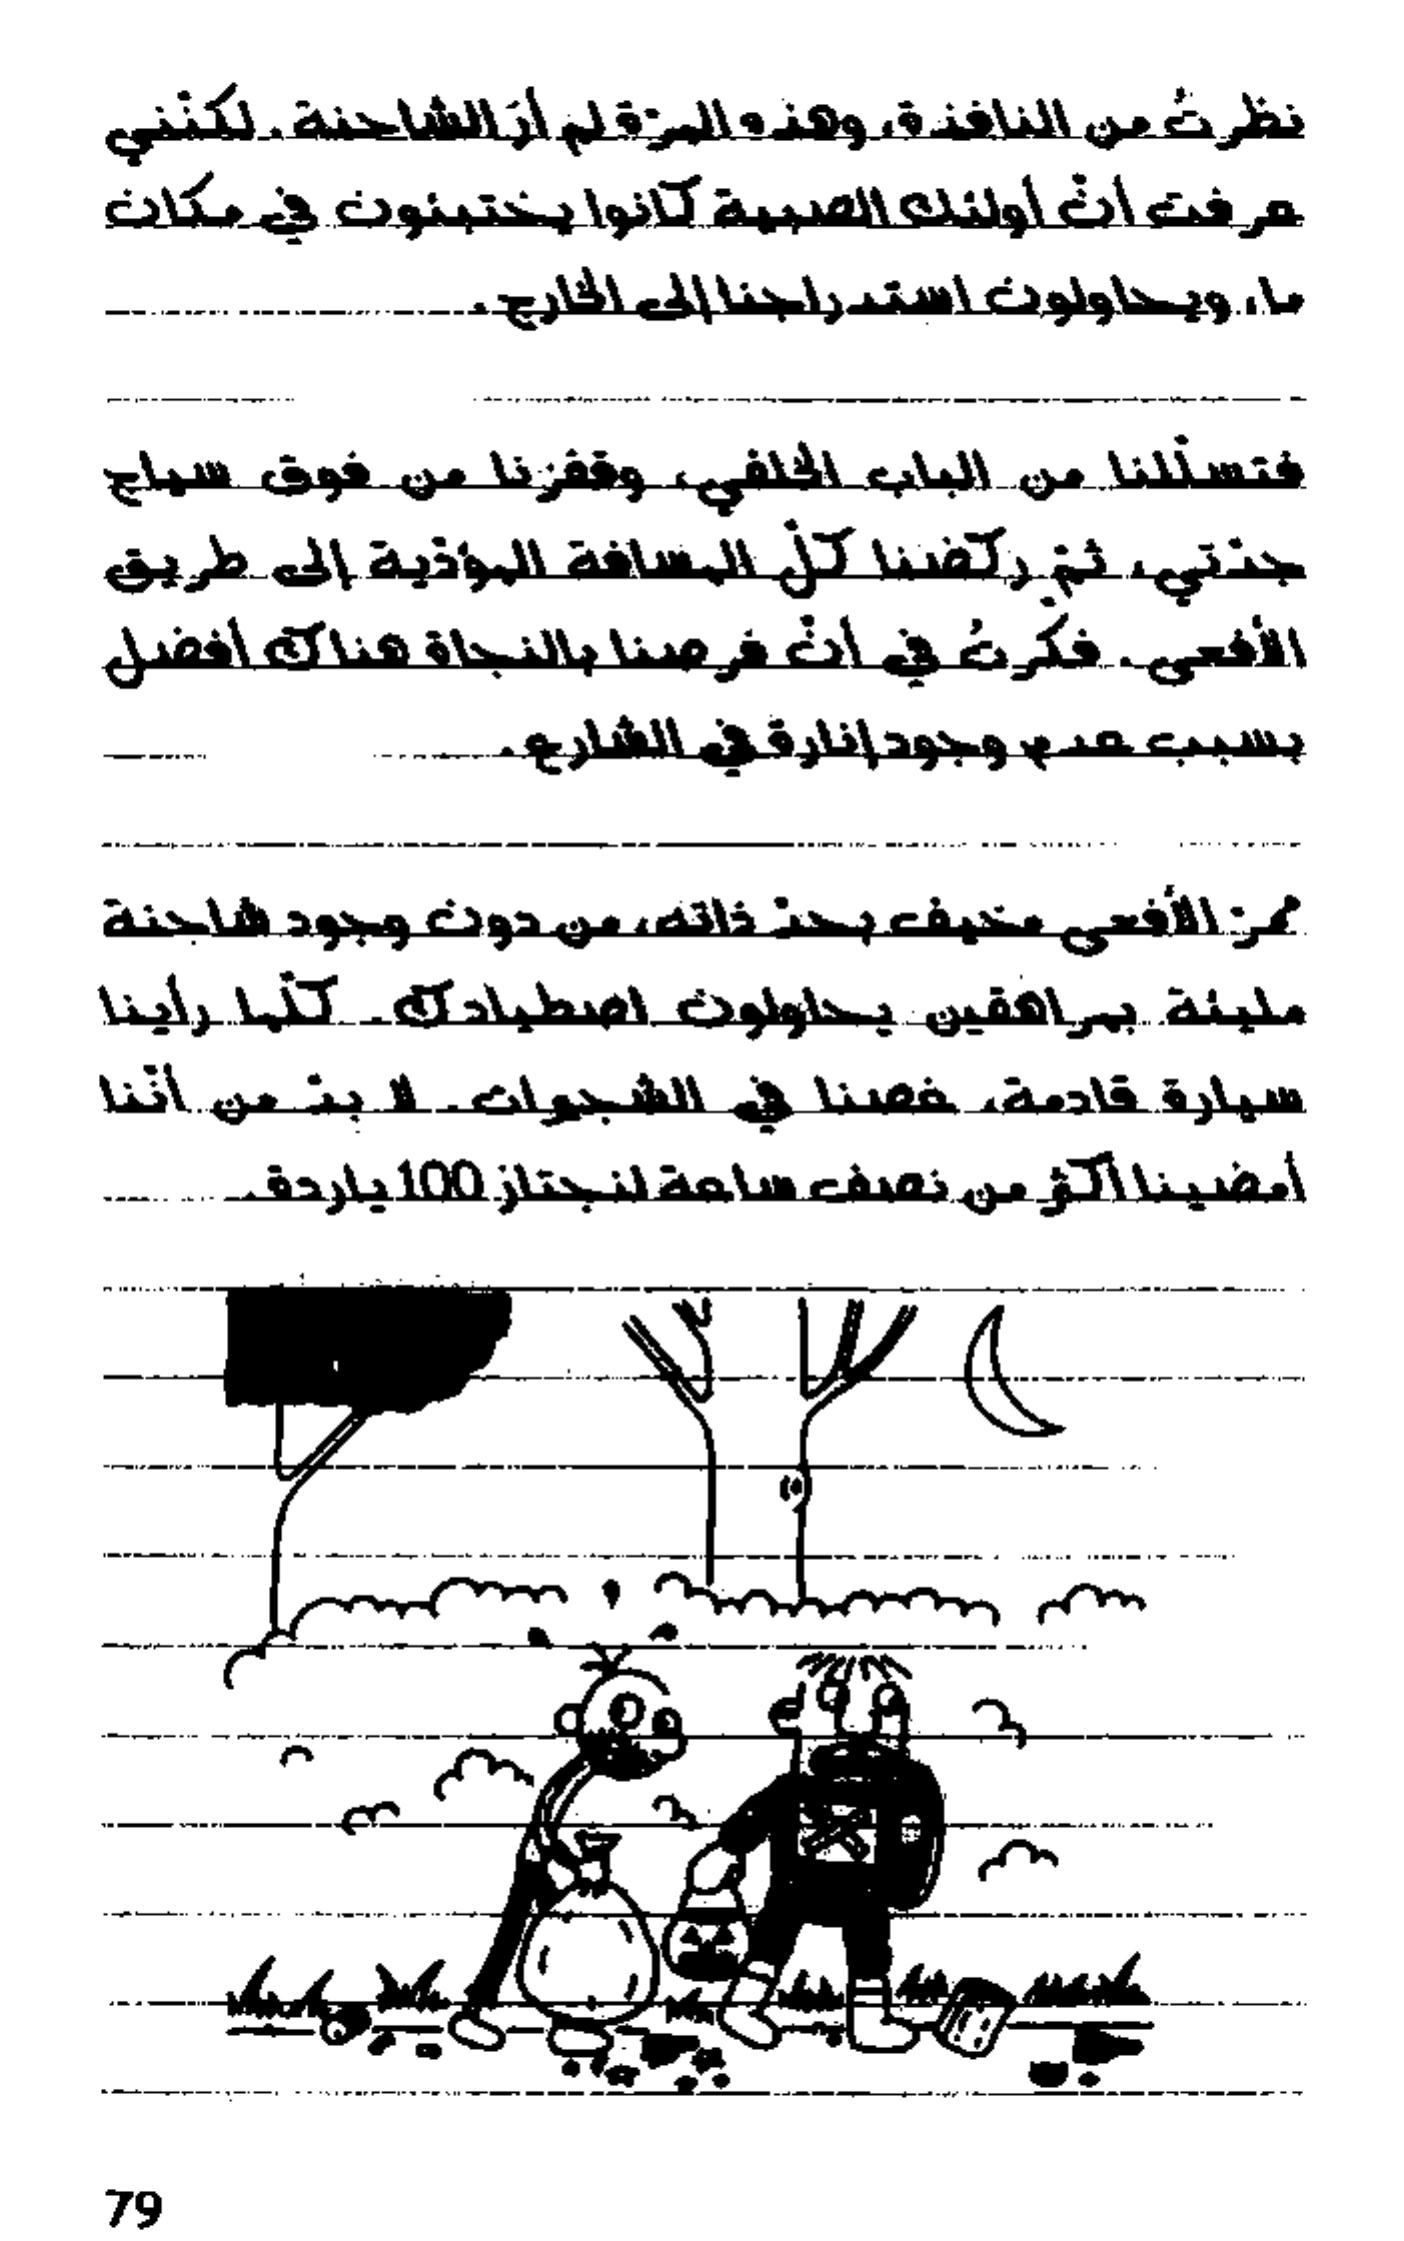 نظرتُ من النافذة، وهذه المرّة لم أرَ الشاحنة. لكنّني
عرفت أنّ أولئك الصبية كانوا يختبئون في مكان
ما، ويحاولون استدراجنا إلى الخارج.
فتسلّلنا من الباب الخلفي، وقفزنا من فوق سياج
جدّتي، ثمّ ركضنا كلّ المسافة المؤدّية إلى طريق
الأفعى. فكرتُ في أنّ فرصنا بالنجاة هناك أفضل
بسبب عدم وجود إنارة في الشارع.
ممرّ الأفعى مخيف بحدّ ذاته، من دون وجود شاحنة
مليئة بمراهقين يحاولون اصطيادك. كلّما رأينا
سيارة قادمة، غصنا في الشجيرات. لا بدّ من أنّنا
أمضينا أكثر من نصف ساعة لنجتاز 100 ياردة.
79